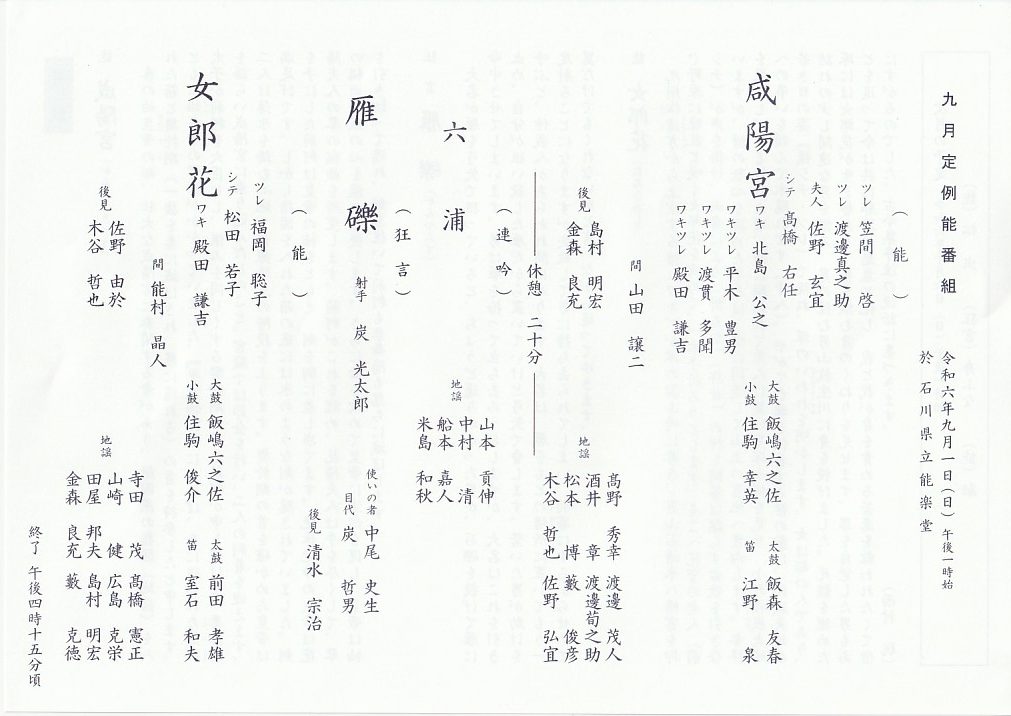 九月定例能番組
令和六年九月一日（日）午後一時始
於 石川県立能楽堂
（能）
咸陽宮
ツレ 笠間 啓
ツレ 渡邊真之助
夫人 佐野 玄宜
シテ 髙橋 右任
ワキ 北島 公之
ワキツレ 平木 豊男
ワキツレ 渡貫 多聞
ワキツレ 殿田 謙吉
間 山田 譲二
大鼓 飯嶋六之佐
小鼓 住駒 幸英
太鼓 飯森 友春
笛 江野 泉
後見 島村 明宏
金森 良充
地謡
髙野 秀幸 渡邊 茂人
酒井 章 渡邊荀之助
松本 博 藪 俊彦
木谷 哲也 佐野 弘宜
休憩 二十分
（連吟）
六浦
地謡
山本 貢伸
中村 清
船本 嘉人
米島 和秋
（狂言）
雁礫
射手 炭 光太郎
使いの者 中尾 史生
目代 炭 哲男
後見 清水 宗治
（能）
女郎花
ツレ 福岡 聡子
シテ 松田 若子
ワキ 殿田 謙吉
間 能村 晶人
大鼓 飯嶋六之佐
小鼓 住駒 俊介
太鼓 前田 孝雄
笛 室石 和夫
後見 佐野 由於
木谷 哲也
地謡
寺田 茂 髙橋 憲正
山崎 健 広島 克栄
田屋 邦夫 島村 明宏
金森 良充 藪 克徳
終了 午後四時十五分頃